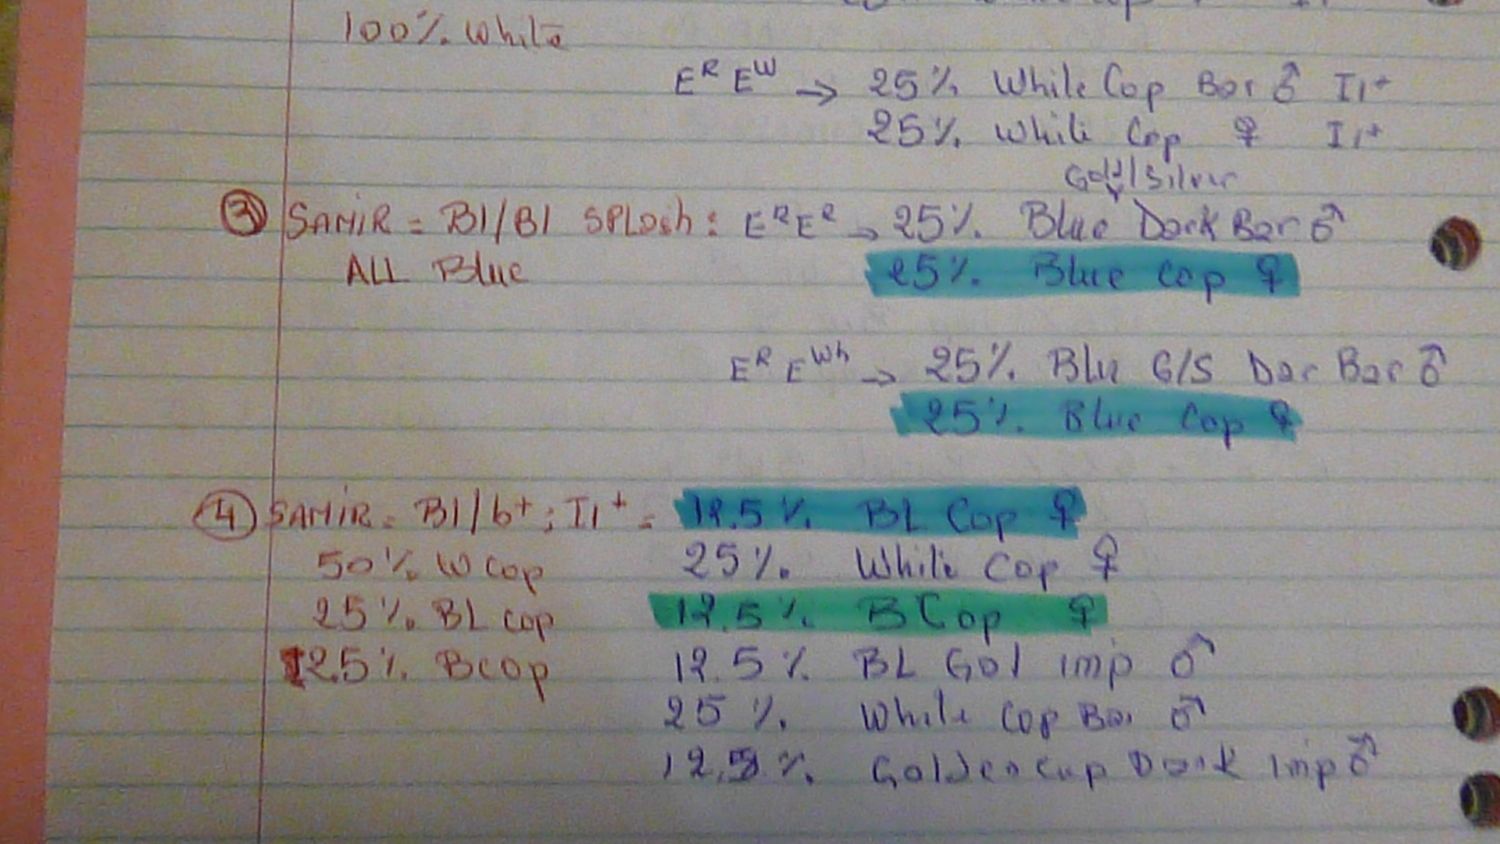 100% White
E^R E^W → 25% While Cop Bar ♂ I/i+
25% While Cop ♀ I/i+
Gold/Silver
③ SAMIR = Bl/Bl SPLash: E^R E^R → 25% Blue Dark Bar ♂
ALL Blue 25% Blue Cop ♀
E^R E^Wh → 25% Blu G/S Dar Bar ♂
25% Blue Cop ♀
④ SAMIR = Bl/b+; I/i+ = 12.5% BL Cop ♀
50% W Cop 25% While Cop ♀
25% BL Cop 12.5% B Cop ♀
12.5% BCop 12.5% BL Gol imp ♂
25% While Cop Bar ♂
12.5% Golden Cup Dark Imp ♂